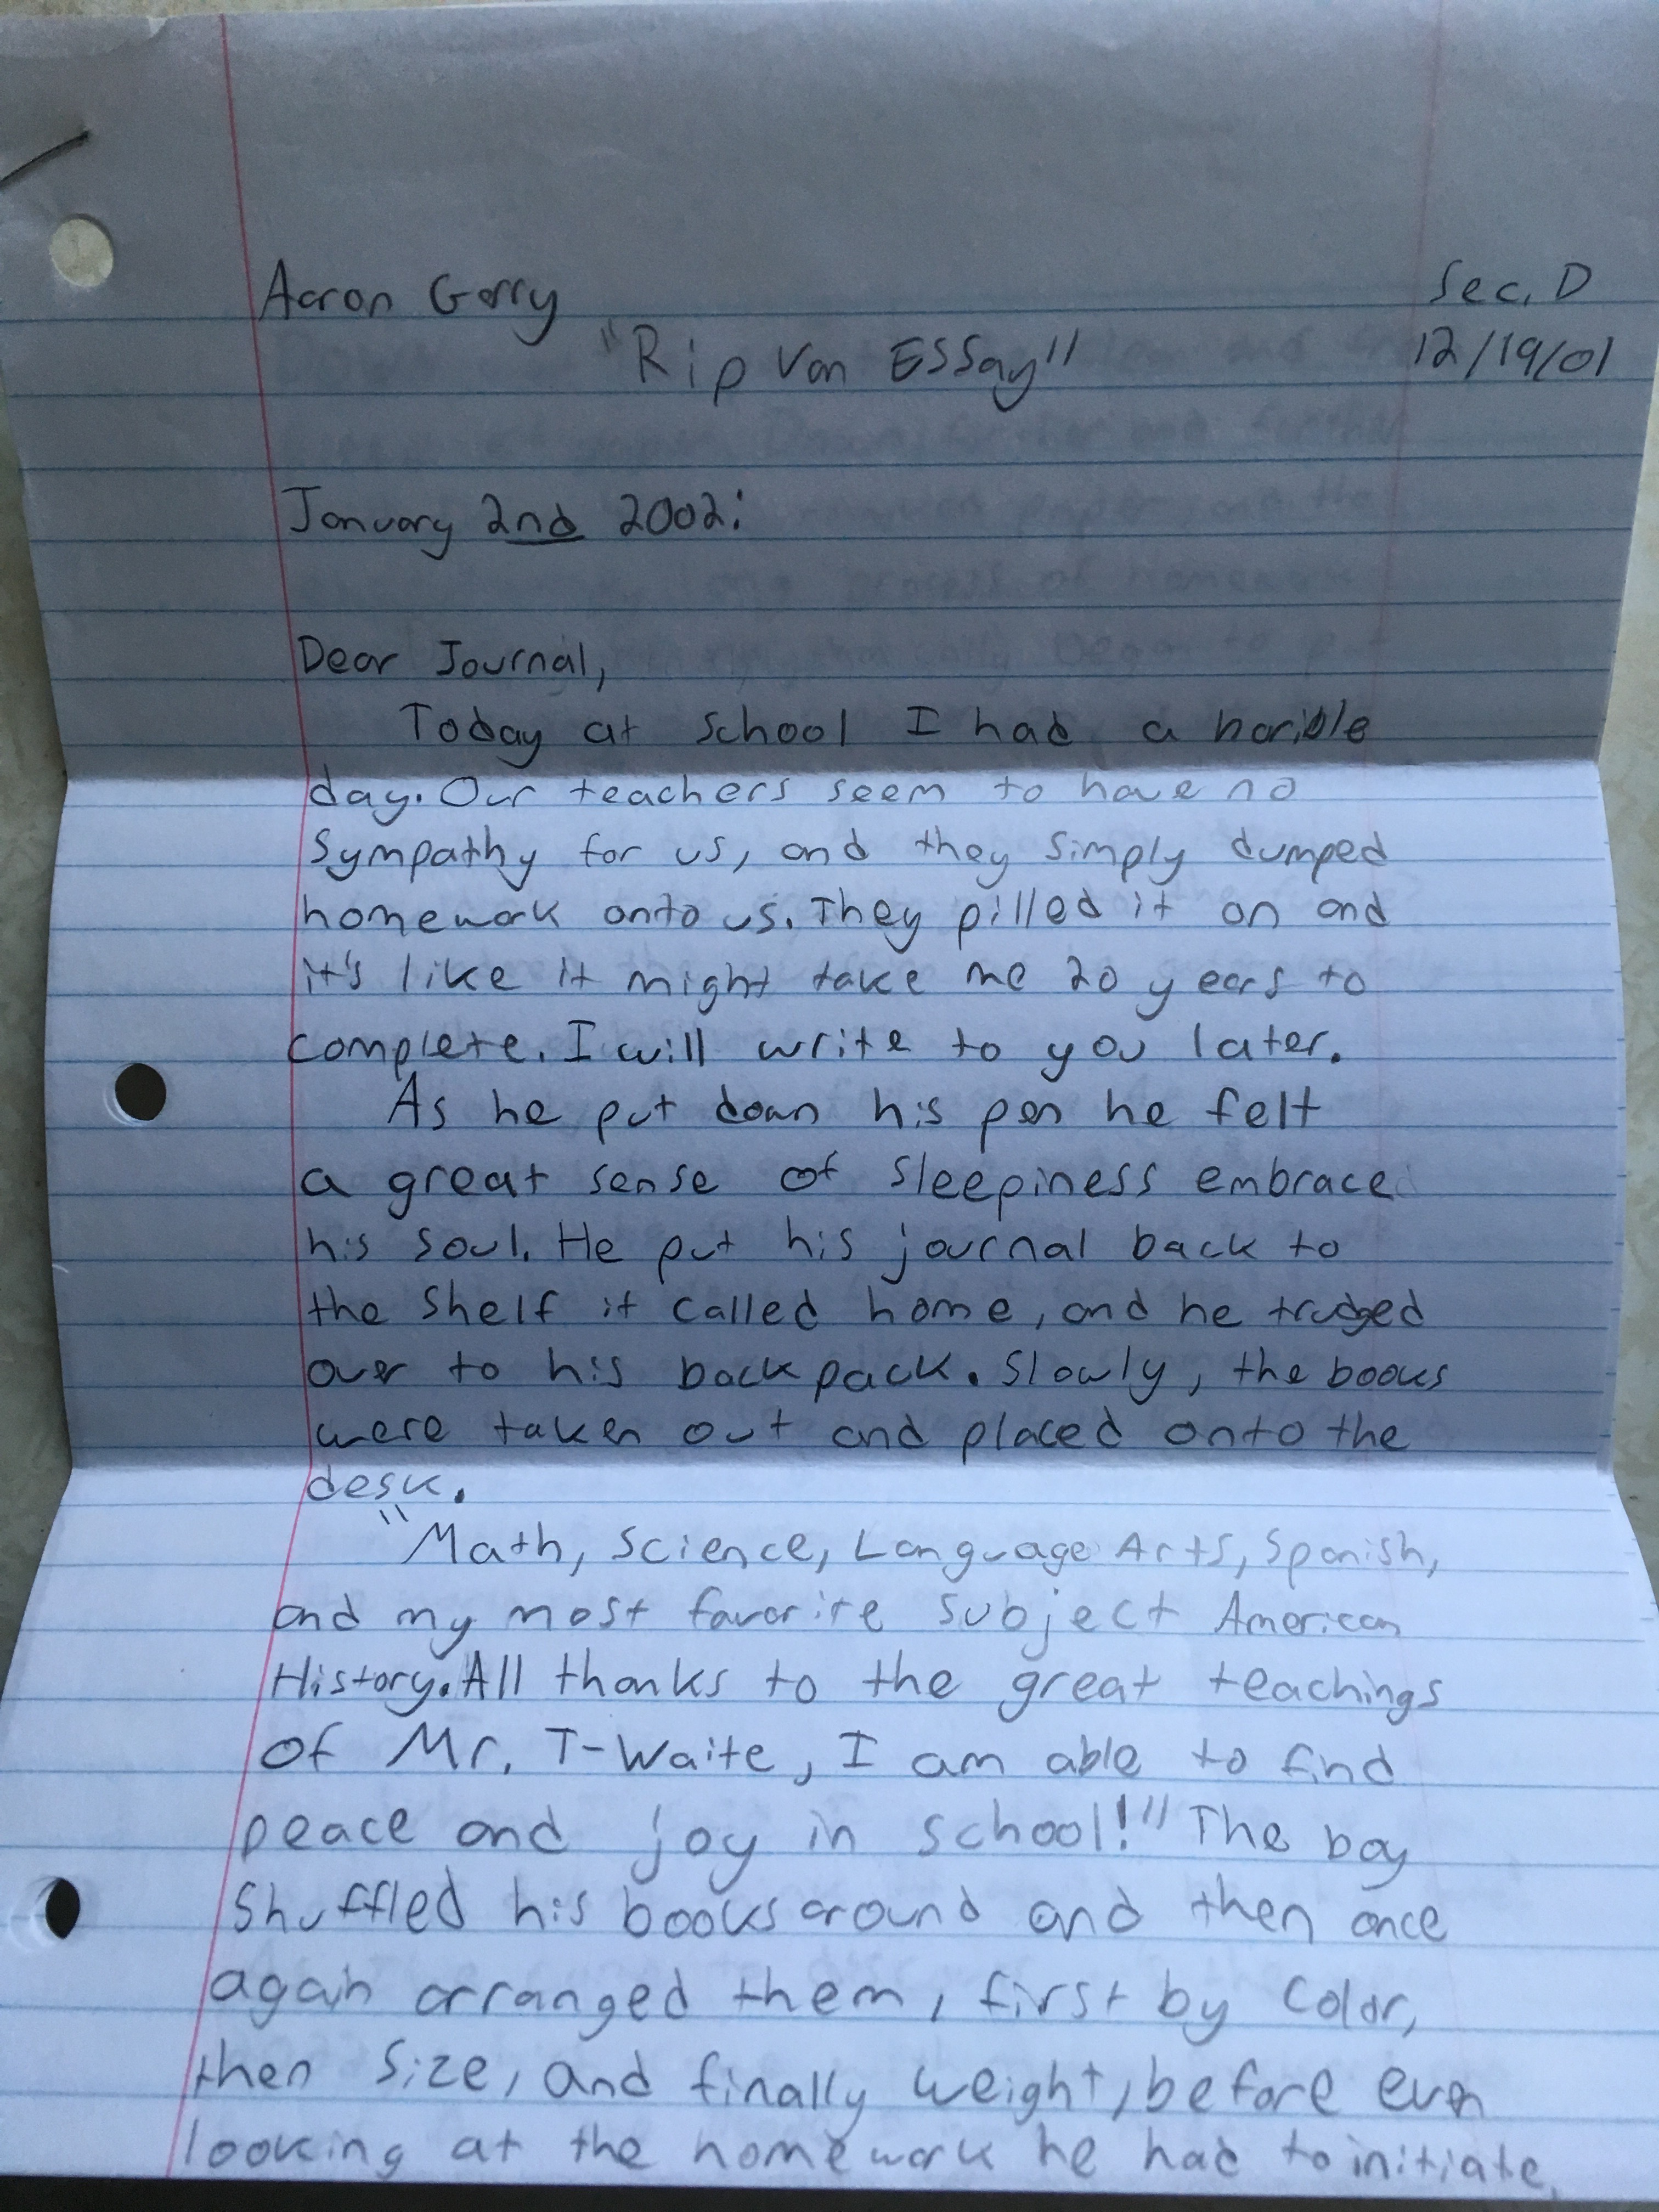 Aaron Gorry
Sec. D
"Rip Van Essay"
12/19/01
January 2nd 2002:
Dear Journal,
Today at school I had a horible
day. Our teachers seem to have no
sympathy for us, and they simply dumped
homework onto us. They pilled it on and
it's like it might take me 20 years to
complete. I will write to you later.
As he put down his pen he felt
a great sense of sleepiness embrace
his soul. He put his journal back to
the shelf it called home, and he trudged
over to his backpack. Slowly, the books
were taken out and placed onto the
desk.
"Math, Science, Language Arts, Spanish,
and my most favorite subject American
History. All thanks to the great teachings
of Mr. T-Waite, I am able to find
peace and joy in school!" The boy
shuffled his books around and then once
again arranged them, first by color,
then size, and finally weight, before even
looking at the homework he had to initiate.